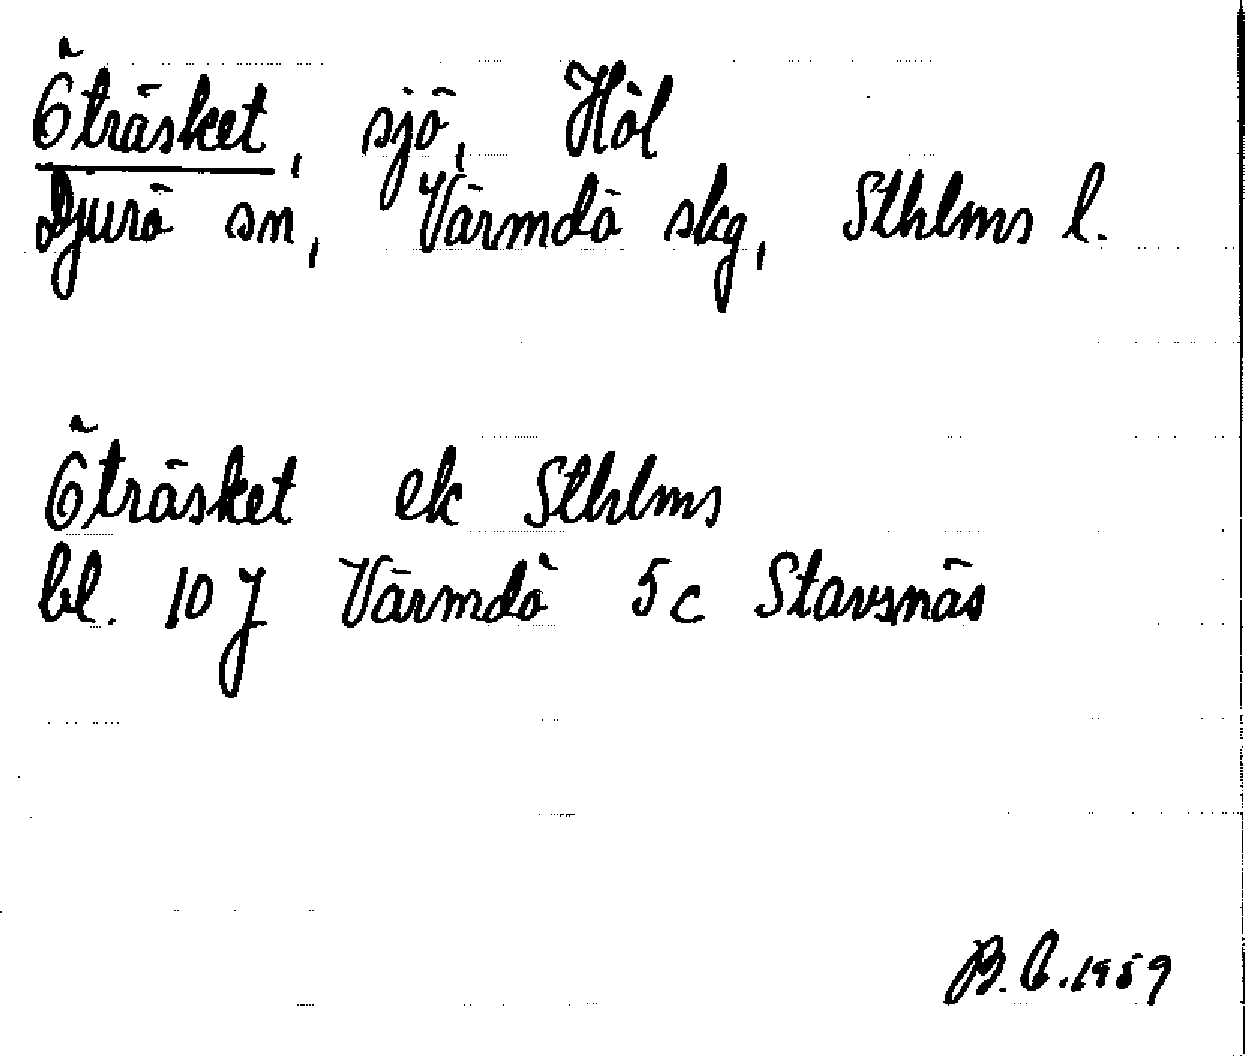 Öträsket, sjö, Höl
Djurö sn, Värmdö skg, Sthlms l.
Öträsket ek Sthlms
bl. 10 J Värmdö 5 c Stavsnäs
B.C. 1959